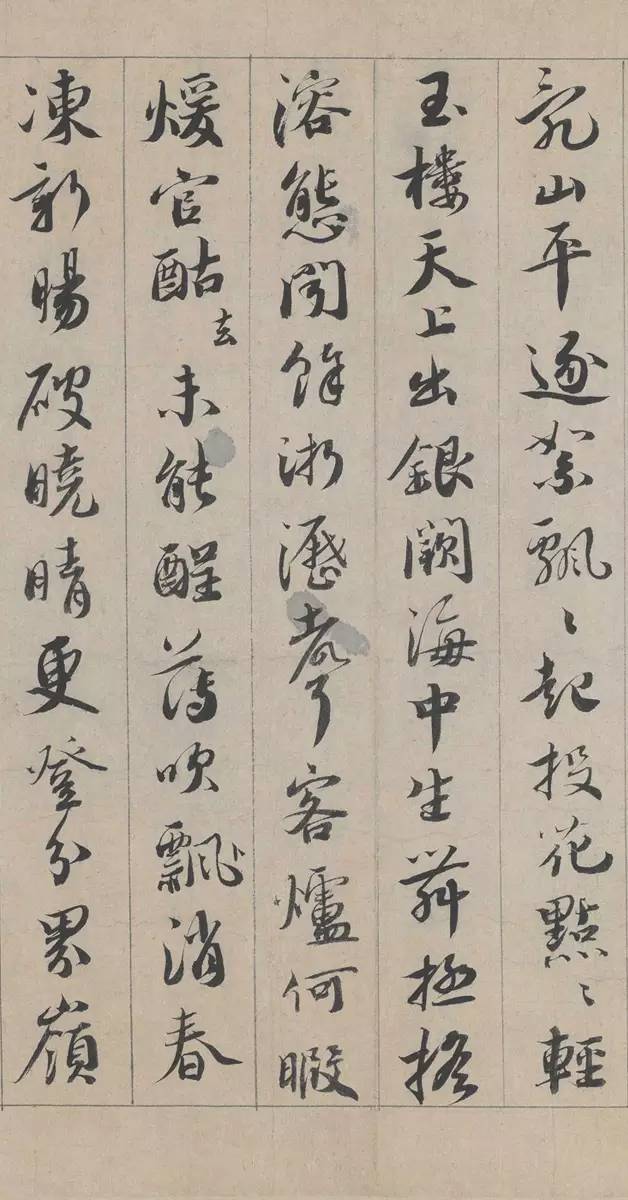 亂山平逐絮飄〻起投花點〻輕
玉樓天上出銀闕海中生舞極搖
溶態聞餘淅瀝聲客爐何暇
煖官酤去未能醒薄吹飄消春
凍新暘破曉晴更登分界嶺